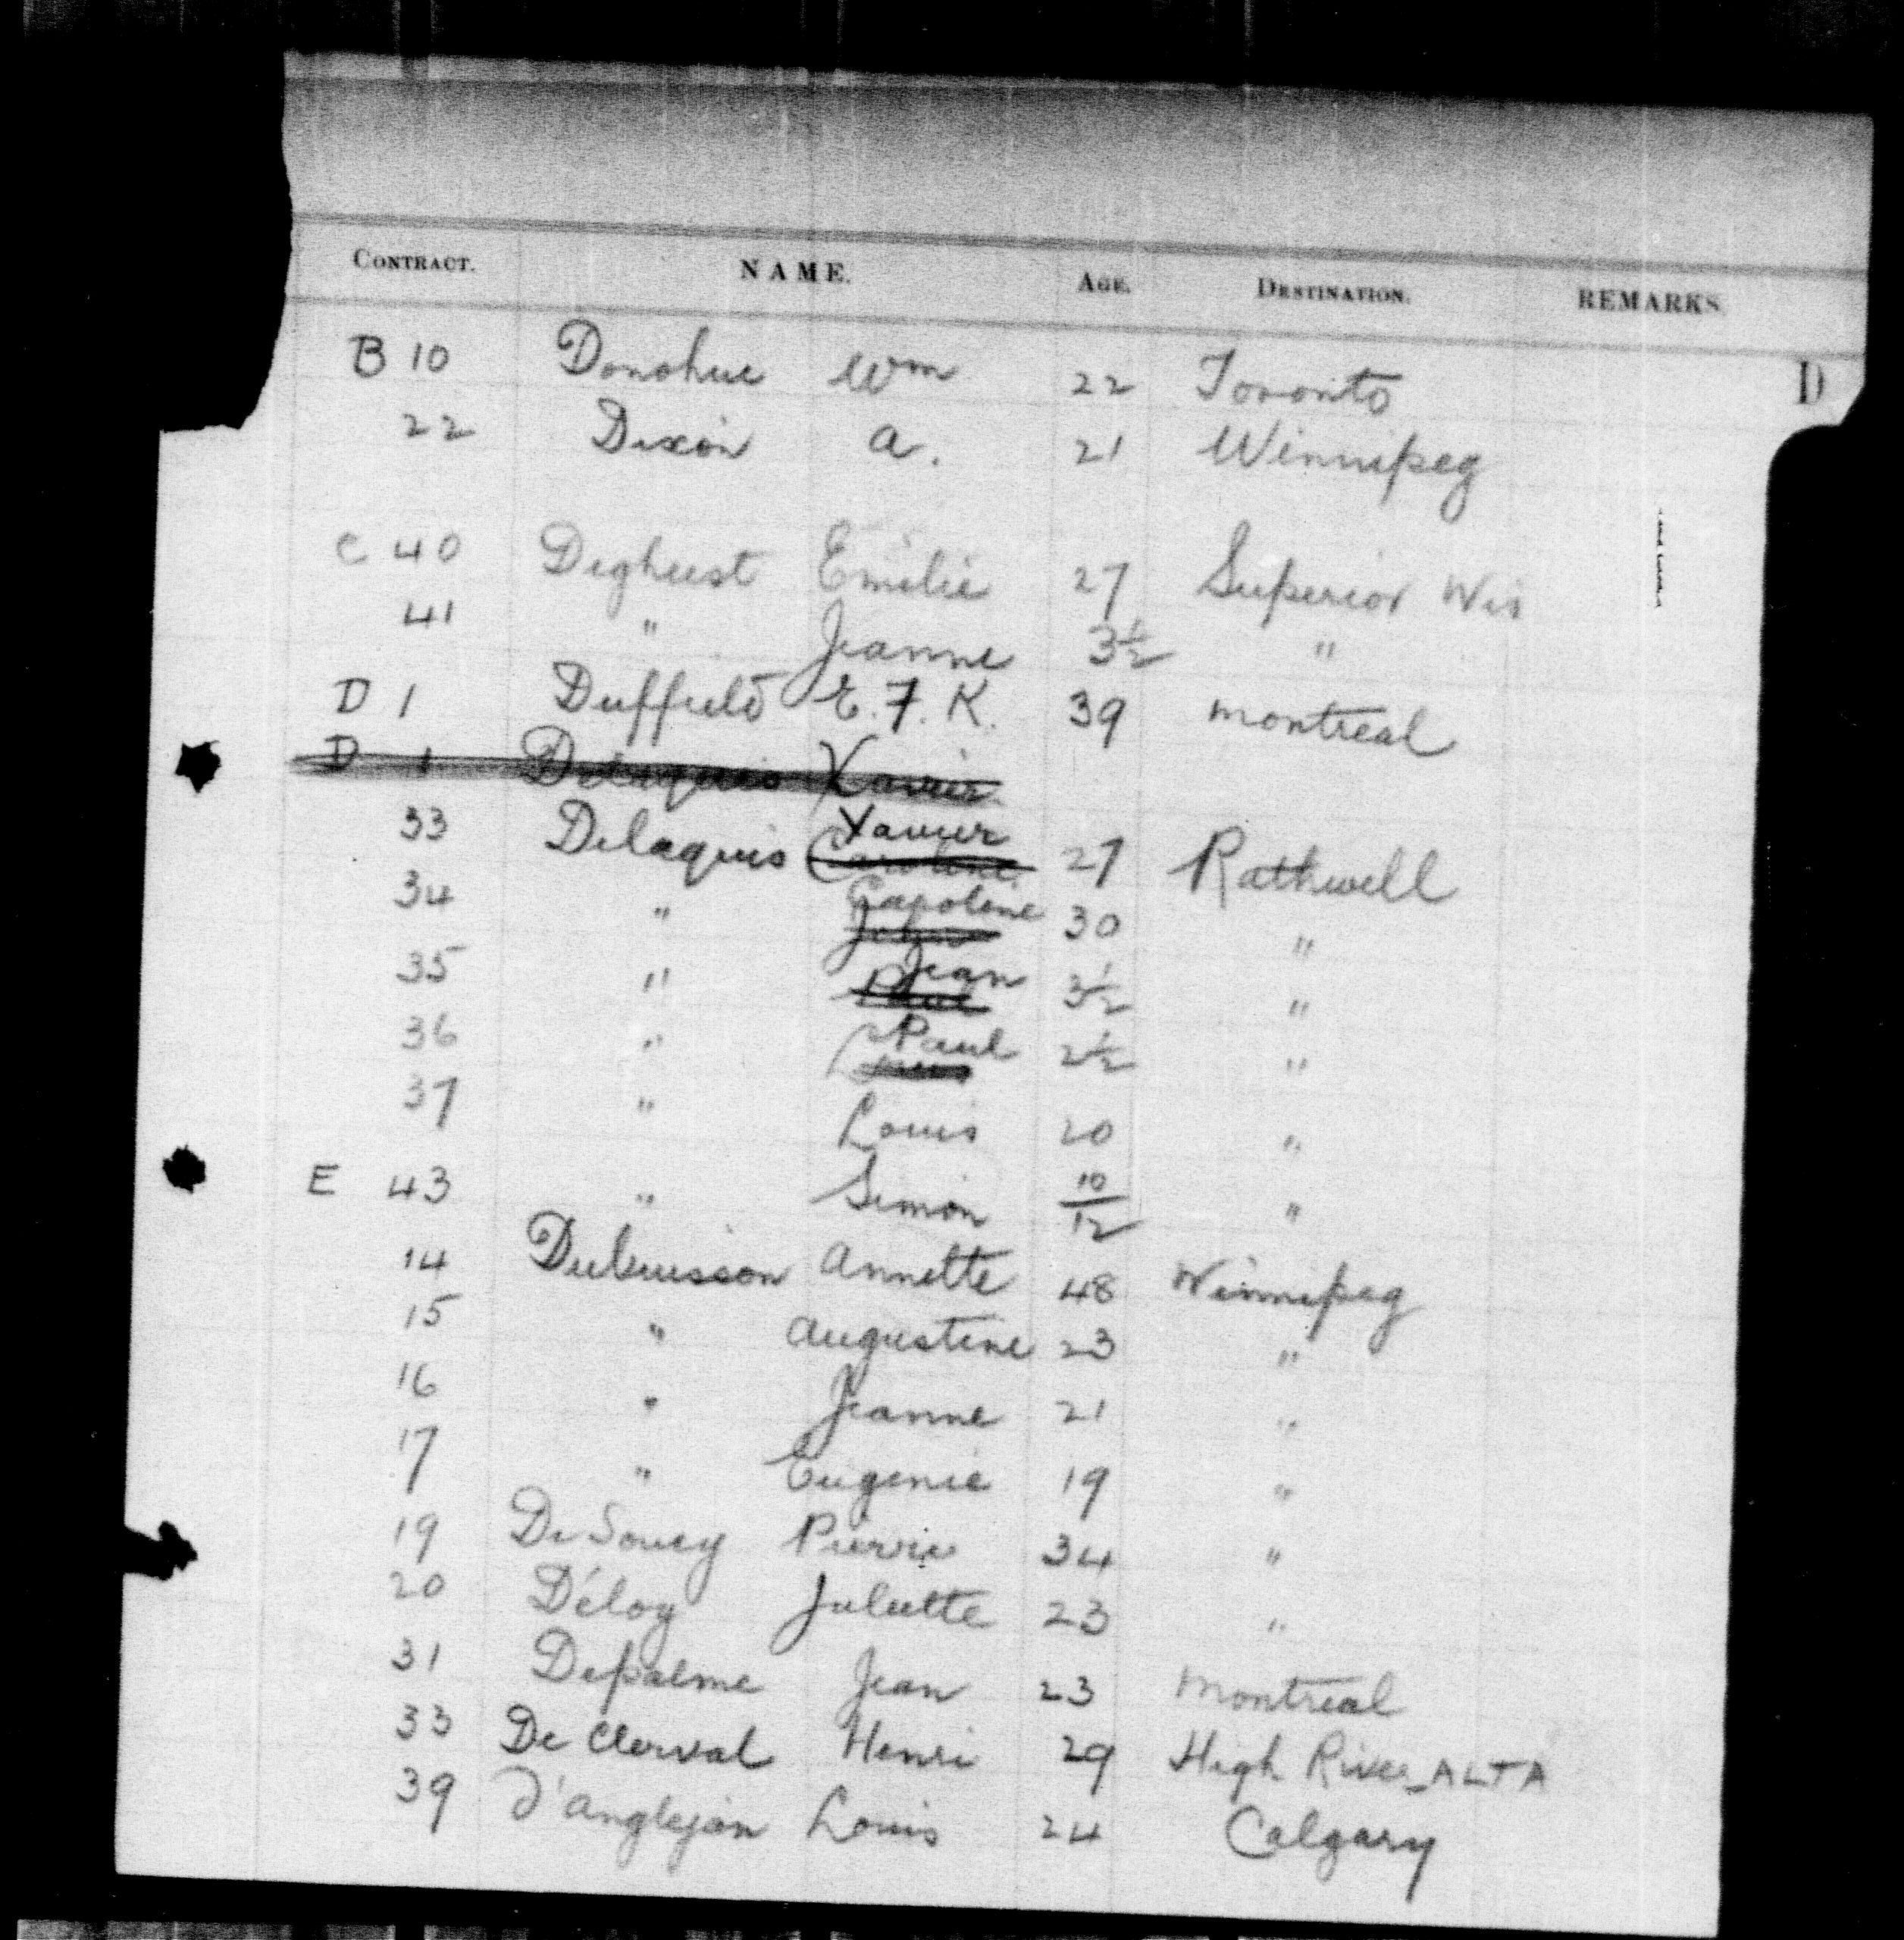 CONTRACT. NAME. AGE. DESTINATION. REMARKS.
D
B 10 Donohue Wm 22 Toronto
22 Dixon A. 21 Winnipeg
C 40 Deghust Emilie 27 Superior Wis
41 " Jeanne 3½ "
D 1 Duffield E. F. K. 39 Montreal
D 1 Delaquis Xavier
33 Delaquis Caroline Xavier 27 Rathwell
34 " John Capoline 30 "
35 " Paul Jean 3½ "
36 " Louis Paul 2½ "
37 " Louis 20 "
E 43 " Simon 10/12 "
14 Dubuisson Annette 48 Winnipeg
15 " Augustine 23 "
16 " Jeanne 21 "
17 " Eugenie 19 "
19 De Soucy Pierre 34 "
20 Déloy Juliette 23 "
31 Depalme Jean 23 Montreal
33 De Clerval Henri 29 High River ALTA
39 D'Anglejan Louis 24 Calgary